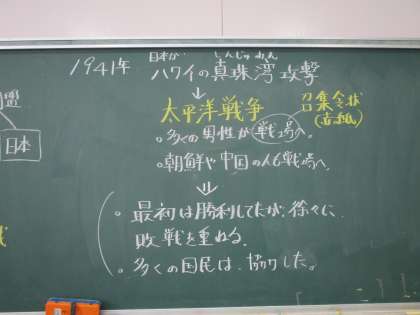 日本が しんじゅわん
1941年 ハワイの真珠湾攻撃
↓
太平洋戦争
召集令状
(赤紙)
。多くの男性が戦場へ。
。朝鮮や中国の人も戦場へ
⇓
。最初は勝利してたが、徐々に
敗戦を重ねる。
。多くの国民は、協力した。
盟
日本